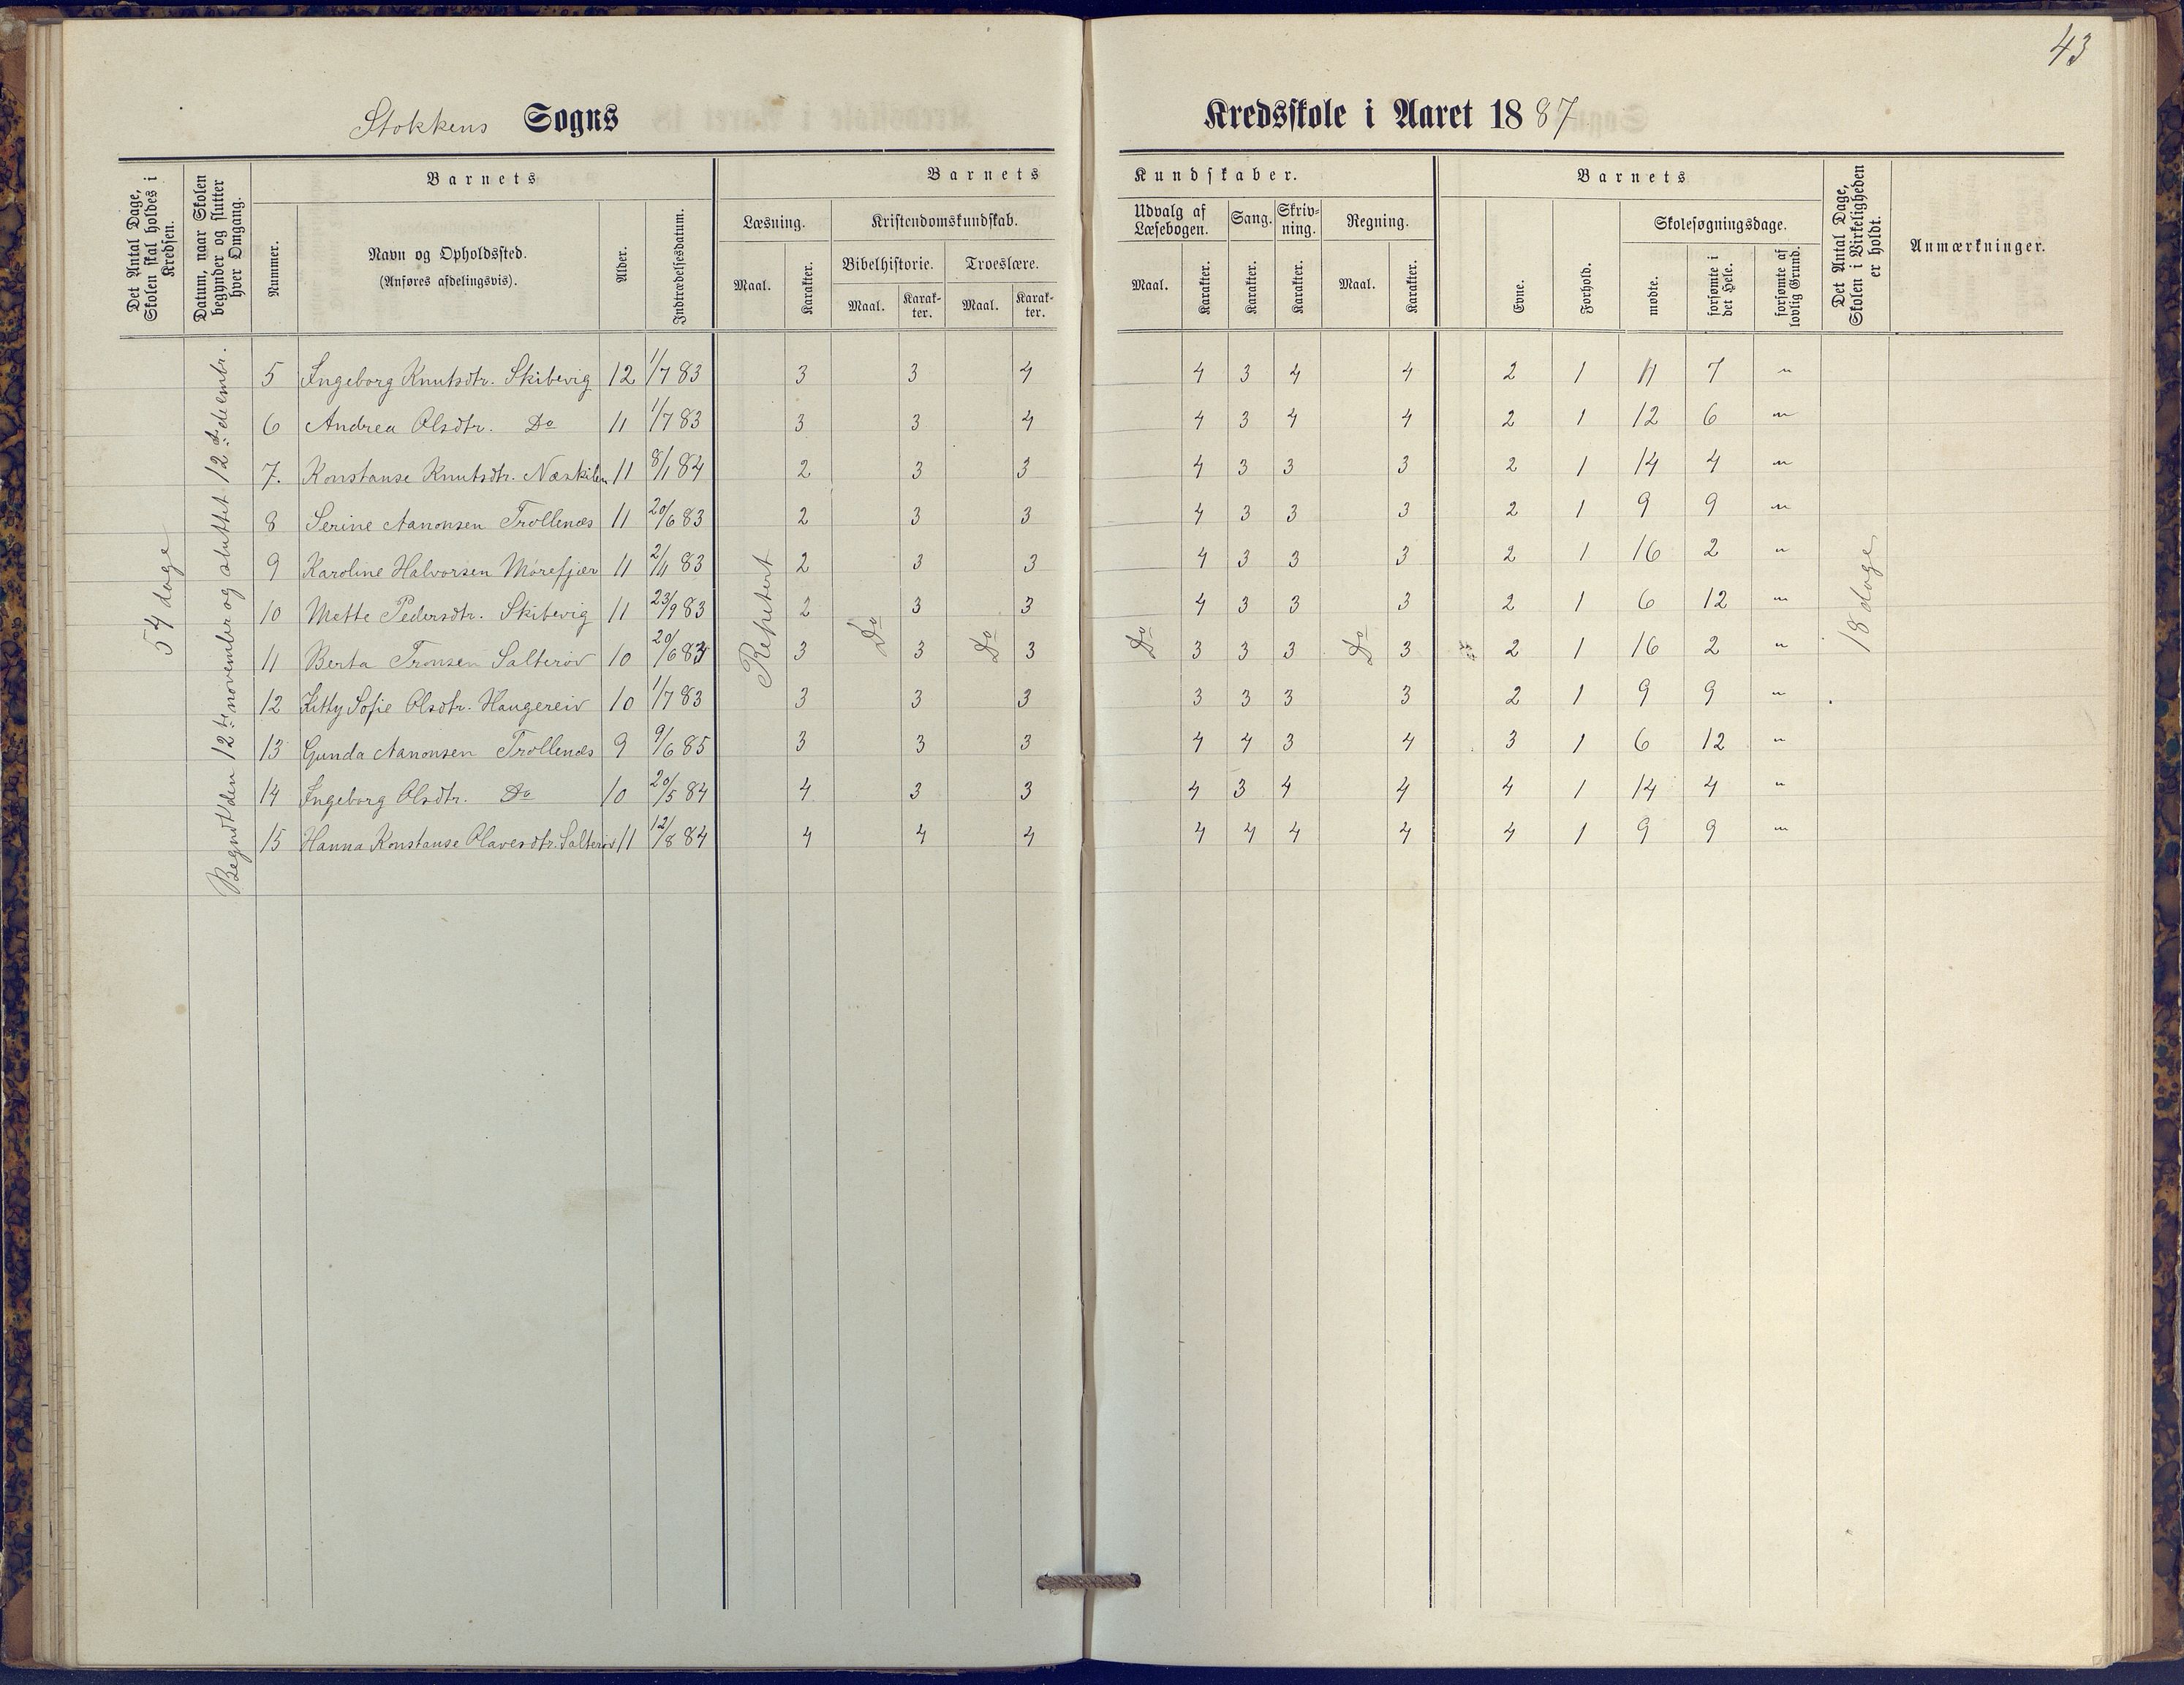 43
Stokkens Sogns
Kredsskole i Aaret 1887
Det Antal Dage, Skolen skal holdes i Kredsen.
Datum, naar Skolen begynder og slutter hver Omgang.
Barnets
Nummer.
Navn og Opholdssted.
(Anføres afdelingsvis).
Alder.
Indtrædelsesdatum.
Barnets
Læsning.
Maal.
Karakter.
Kristendomskundskab.
Bibelhistorie.
Maal.
Karakter.
Troeslære.
Maal.
Karakter.
Kundskaber.
Udvalg af Læsebogen.
Maal.
Karakter.
Sang.
Karakter.
Skrivning.
Karakter.
Regning.
Maal.
Karakter.
Barnets
Evne.
Forhold.
Skolesøgningsdage.
mødte.
forsømte i det Hele.
forsømte af lovlig Grund.
Det Antal Dage, Skolen i Virkeligheden er holdt.
Anmærkninger.
54 dage
Begyndt den 12te november og sluttet 12te decembr.
5 Ingeborg Knutsdtr. Skibevig 12 1/7 83 3 3 4 4 3 4 4 2 1 11 7 "
6 Andrea Olsdtr. Do 11 1/7 83 3 3 4 4 3 4 4 2 1 12 6 "
7. Konstanse Knutsdtr. Næskilen 11 8/1 84 2 3 3 4 3 3 3 2 1 14 4 "
8 Serine Aanonsen Trollenæs 11 20/6 83 2 3 3 4 3 3 3 2 1 9 9 "
9 Karoline Halvorsen Mörefjær 11 2/4 83 2 3 3 4 3 3 3 2 1 16 2 "
10 Mette Pedersdtr. Skibevig 11 23/9 83 2 3 3 4 3 3 3 2 1 6 12 "
11 Berta Tronsen Salteröv 10 20/6 83 3 3 3 3 3 3 3 2 1 16 2 "
12 Kitty Sofie Olsdtr. Haugereiv 10 1/7 83 3 3 3 3 3 3 3 2 1 9 9 "
13 Gunda Aanonsen Trollenæs 9 9/6 85 3 3 3 4 4 3 4 3 1 6 12 "
14 Ingeborg Olsdtr. Do 10 20/5 84 4 3 3 4 3 4 4 4 1 14 4 "
15 Hanna Konstanse Olavesdtr. Salteröv 11 12/8 84 4 4 4 4 4 4 4 4 1 9 9 "
Repetert
Do
Do
Do
Do
18 dage